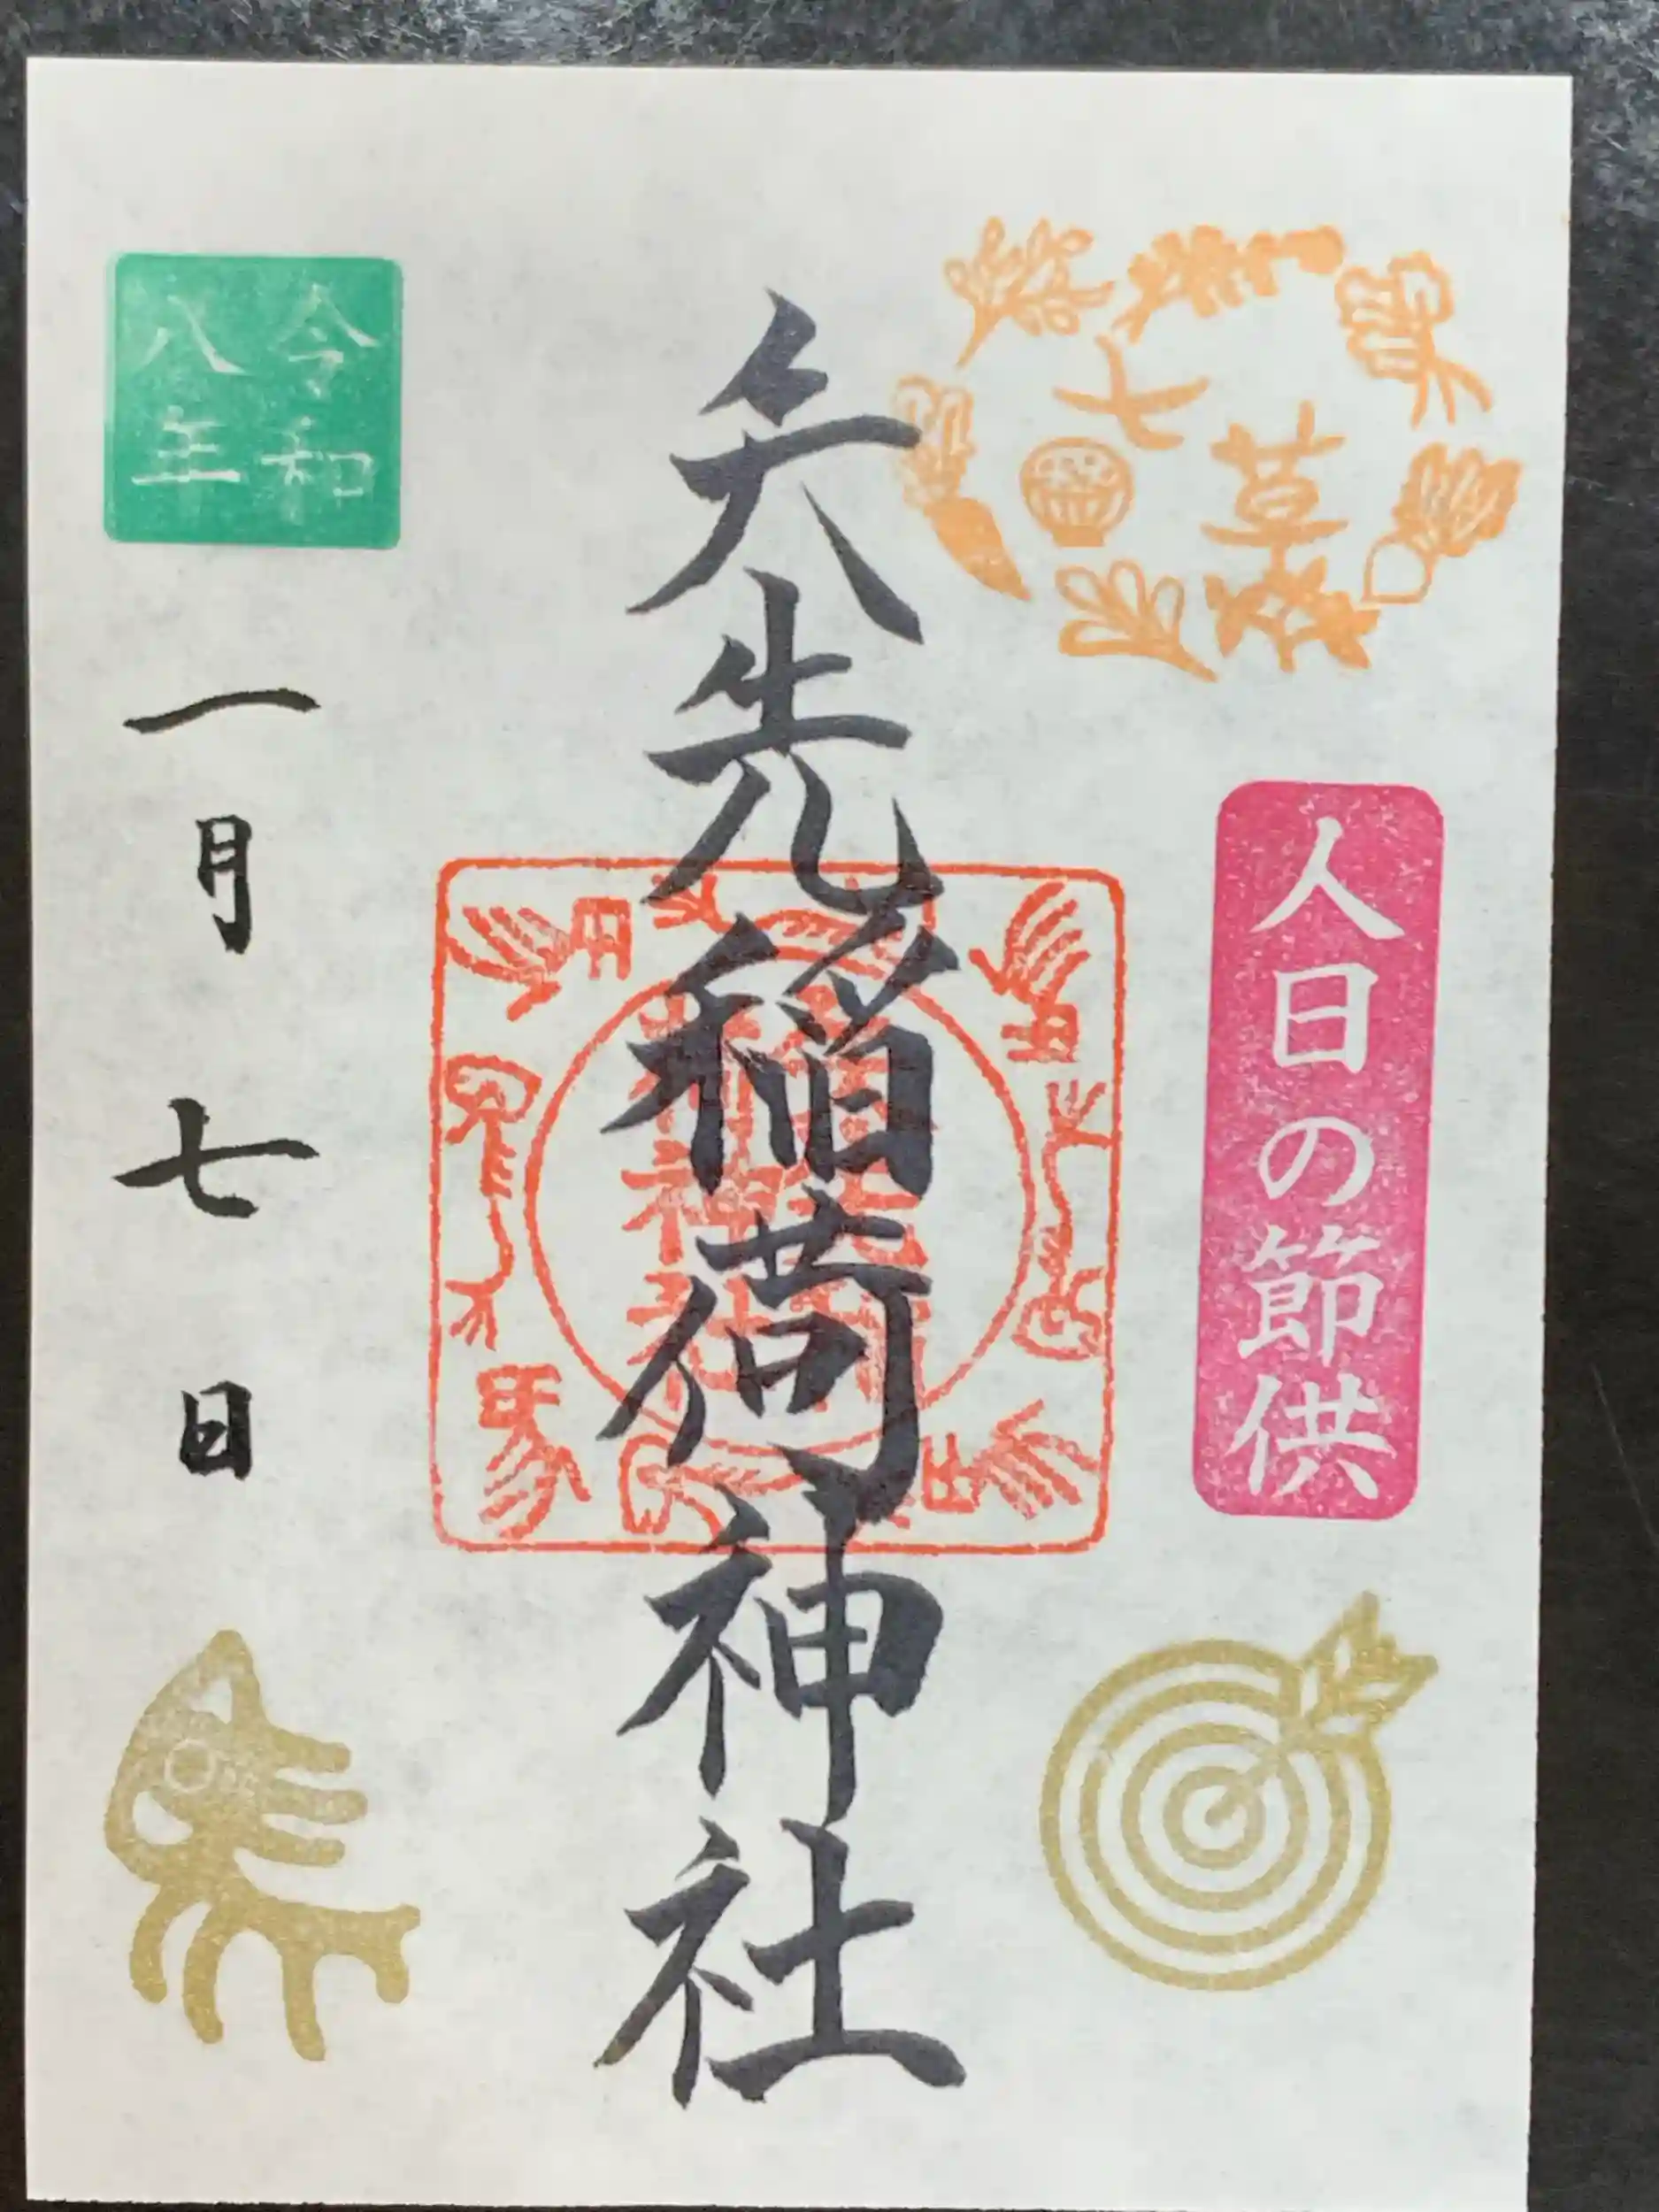 七草
人日の節供
矢先稲荷神社
令和
八年
一月七日